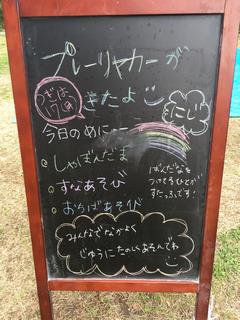 プレーリヤカーが
きたよ
にじ
今日のめにゅー
しゃぼんだま
すなあそび
おちばあそび
ばんだなを
つけてるひとが
すたっふです!
みんなでなかよく
じゆうにたのしくあそんでね